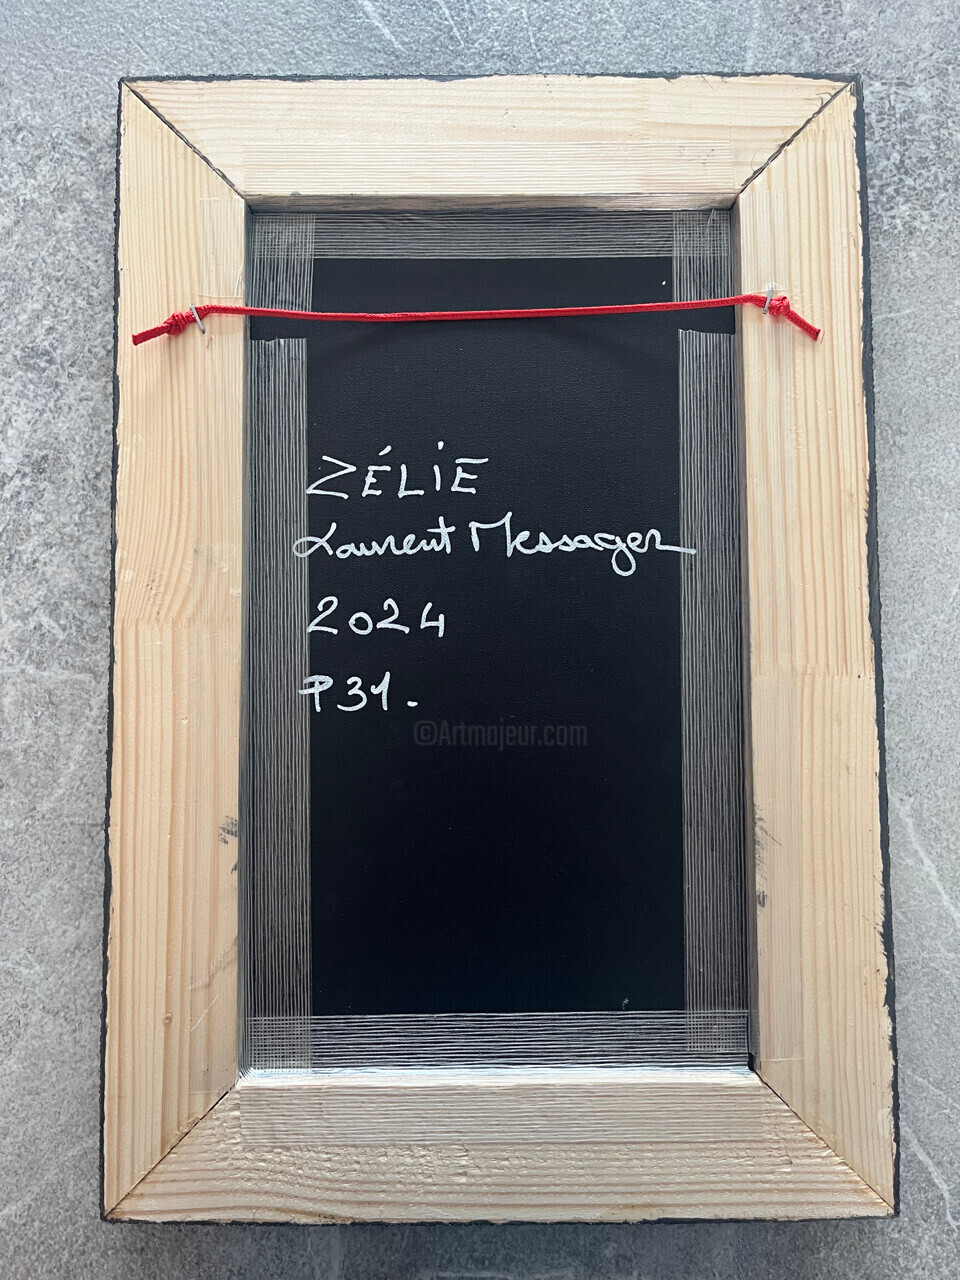 ZÉLIE
Laurent Messager
2024
P31.
©Artmajeur.com